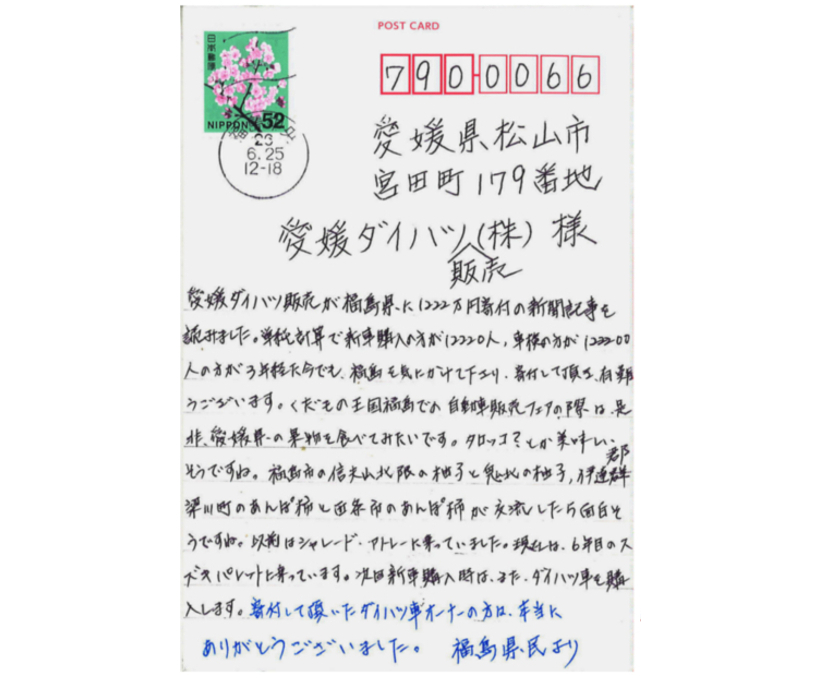 POST CARD
日本郵便
NIPPON 52
23
6.25
12-18
790-0066
愛媛県松山市
宮田町179番地
愛媛ダイハツ(株)様
販売
愛媛ダイハツ販売が福島県に1222万円寄付の新聞記事を
読みました。単純計算で新車購入の方が12220人,車検の方が122200
人の方が3年経た今でも、福島を気にかけて下さり、寄付して頂き、有難
うございます。くだもの王国福島での自動車販売フェアの際は、是
非、愛媛県の果物を食べてみたいです。タロッコ?とか美味しい
そうですね。福島市の信夫山北限の柚子と鬼北の柚子,伊達群
郡
梁川町のあんぽ柿と西条市のあんぽ柿が交流したら面白そ
うですね。以前はシャレード・アトレーに乗っていました。現在は、6年目のス
ズキパレットに乗っています。次回新車購入時は、また、ダイハツ車を購
入します。寄付して頂いたダイハツ車オーナーの方は、本当に
ありがとうございました。 福島県民より